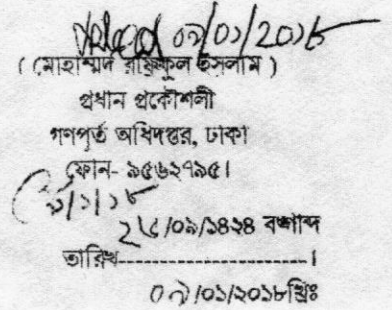 ০৯/০১/২০১৮
( মোহাম্মদ রফিকুল ইসলাম )
প্রধান প্রকৌশলী
গণপূর্ত অধিদপ্তর, ঢাকা
ফোন- ৯৫৬২৭৯৫।
৯/১/১৮
২৬/০৯/১৪২৪ বঙ্গাব্দ
তারিখ-----------------------।
০৯/০১/২০১৮খ্রিঃ